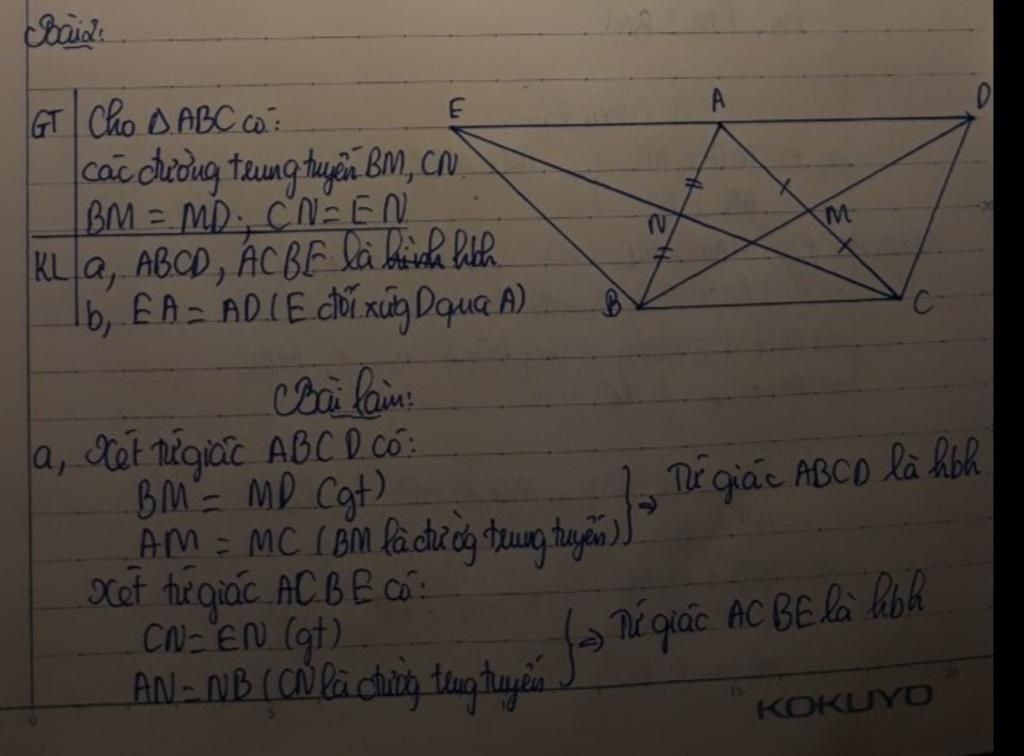 Bài 2:
GT Cho ΔABC có:
các đường trung tuyến BM, CN
BM = MD; CN = EN
KL a, ABCD, ACBE là hbh
b, EA = AD (E đối xứng D qua A)
E A D
N M
B C
Bài làm:
a, Xét tứ giác ABCD có:
BM = MD (gt)
AM = MC (BM là đường trung tuyến) } => Tứ giác ABCD là hbh
Xét tứ giác ACBE có:
CN = EN (gt)
AN = NB (CN là đường trung tuyến } => Tứ giác ACBE là hbh
0 5 15 20
KOKUYO